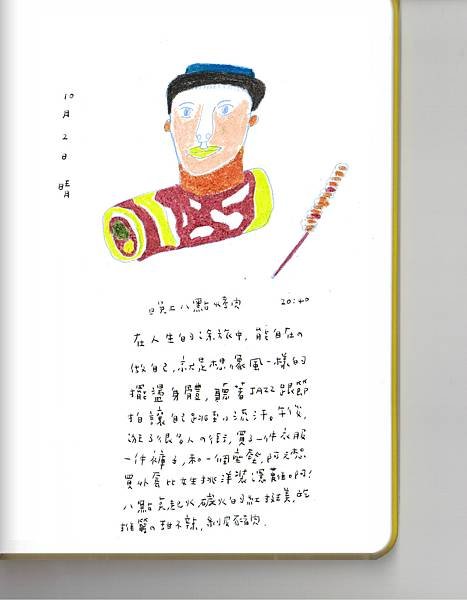 10月2日 晴
晚上八點烤肉 20:40
在人生的旅途中,能自在の
做自己,就是想像風一樣的
擺盪身體,聽著JAZZ跟節
拍讓自己跳到流汗。午後,
逛了很多人の街,買了一件衣服
一件褲子,和一個
買外套比女生挑洋裝還難啊!
八點炭起火,碳火的紅斑美,吃
の甜不辣,豬肉。